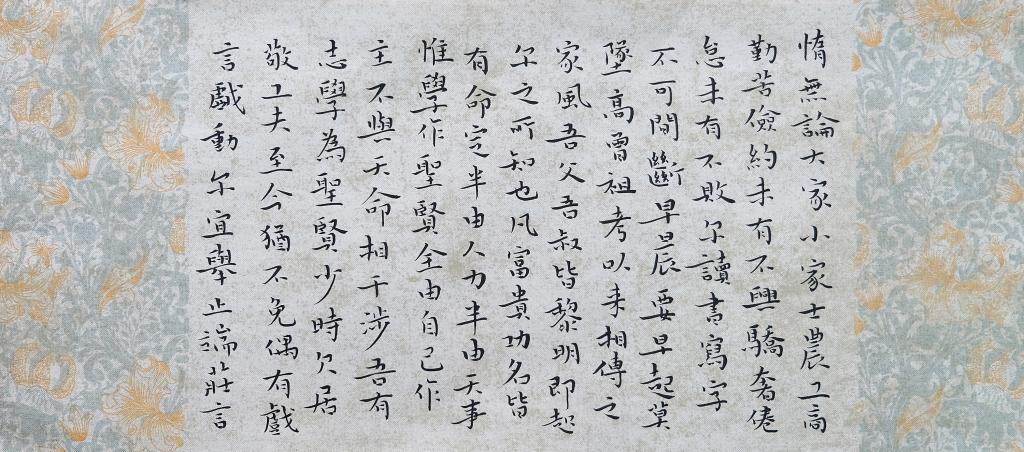 惰無論大家小家士農工商
勤苦儉約未有不興驕奢倦
怠未有不敗尔讀書寫字
不可間斷早晨要早起莫
墜高曾祖考以来相傳之
家風吾父吾叔皆黎明即起
尔之所知也凡富貴功名皆
有命定半由人力半由天事
惟學作聖賢全由自己作
主不與天命相干涉吾有
志學為聖賢少時欠居
敬工夫至今猶不免偶有戲
言戲動尔宜舉止端莊言